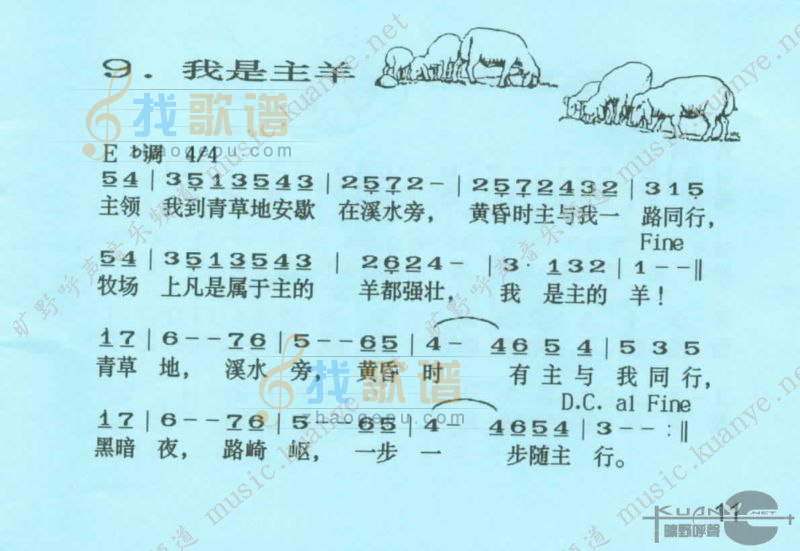 9. 我是主羊
找歌谱
zhaogepu.com
E b调 4/4
54 | 3513543 | 2572- | 2572432 | 315
主领 我到青草地安歇 在溪水旁， 黄昏时主与我一 路同行，
Fine
54 | 3513543 | 2624- | 3· 132 | 1--‖
牧场 上凡是属于主的 羊都强壮， 我 是主的 羊！
17 | 6--76 | 5--65 | 4- 4654 | 535
青草 地， 溪水 旁，黄昏 时 有主与 我同行，
找歌谱
zhaogepu.com
D.C. al Fine
17 | 6--76 | 5--65 | 4- 4654 | 3--:‖
黑暗 夜， 路崎 岖， 一步 一 步随主 行。
11
KUANYE.NET
曠野呼聲
旷野呼声音乐频道 music.kuanye.net
旷野呼声音乐频道 music.kuanye.net